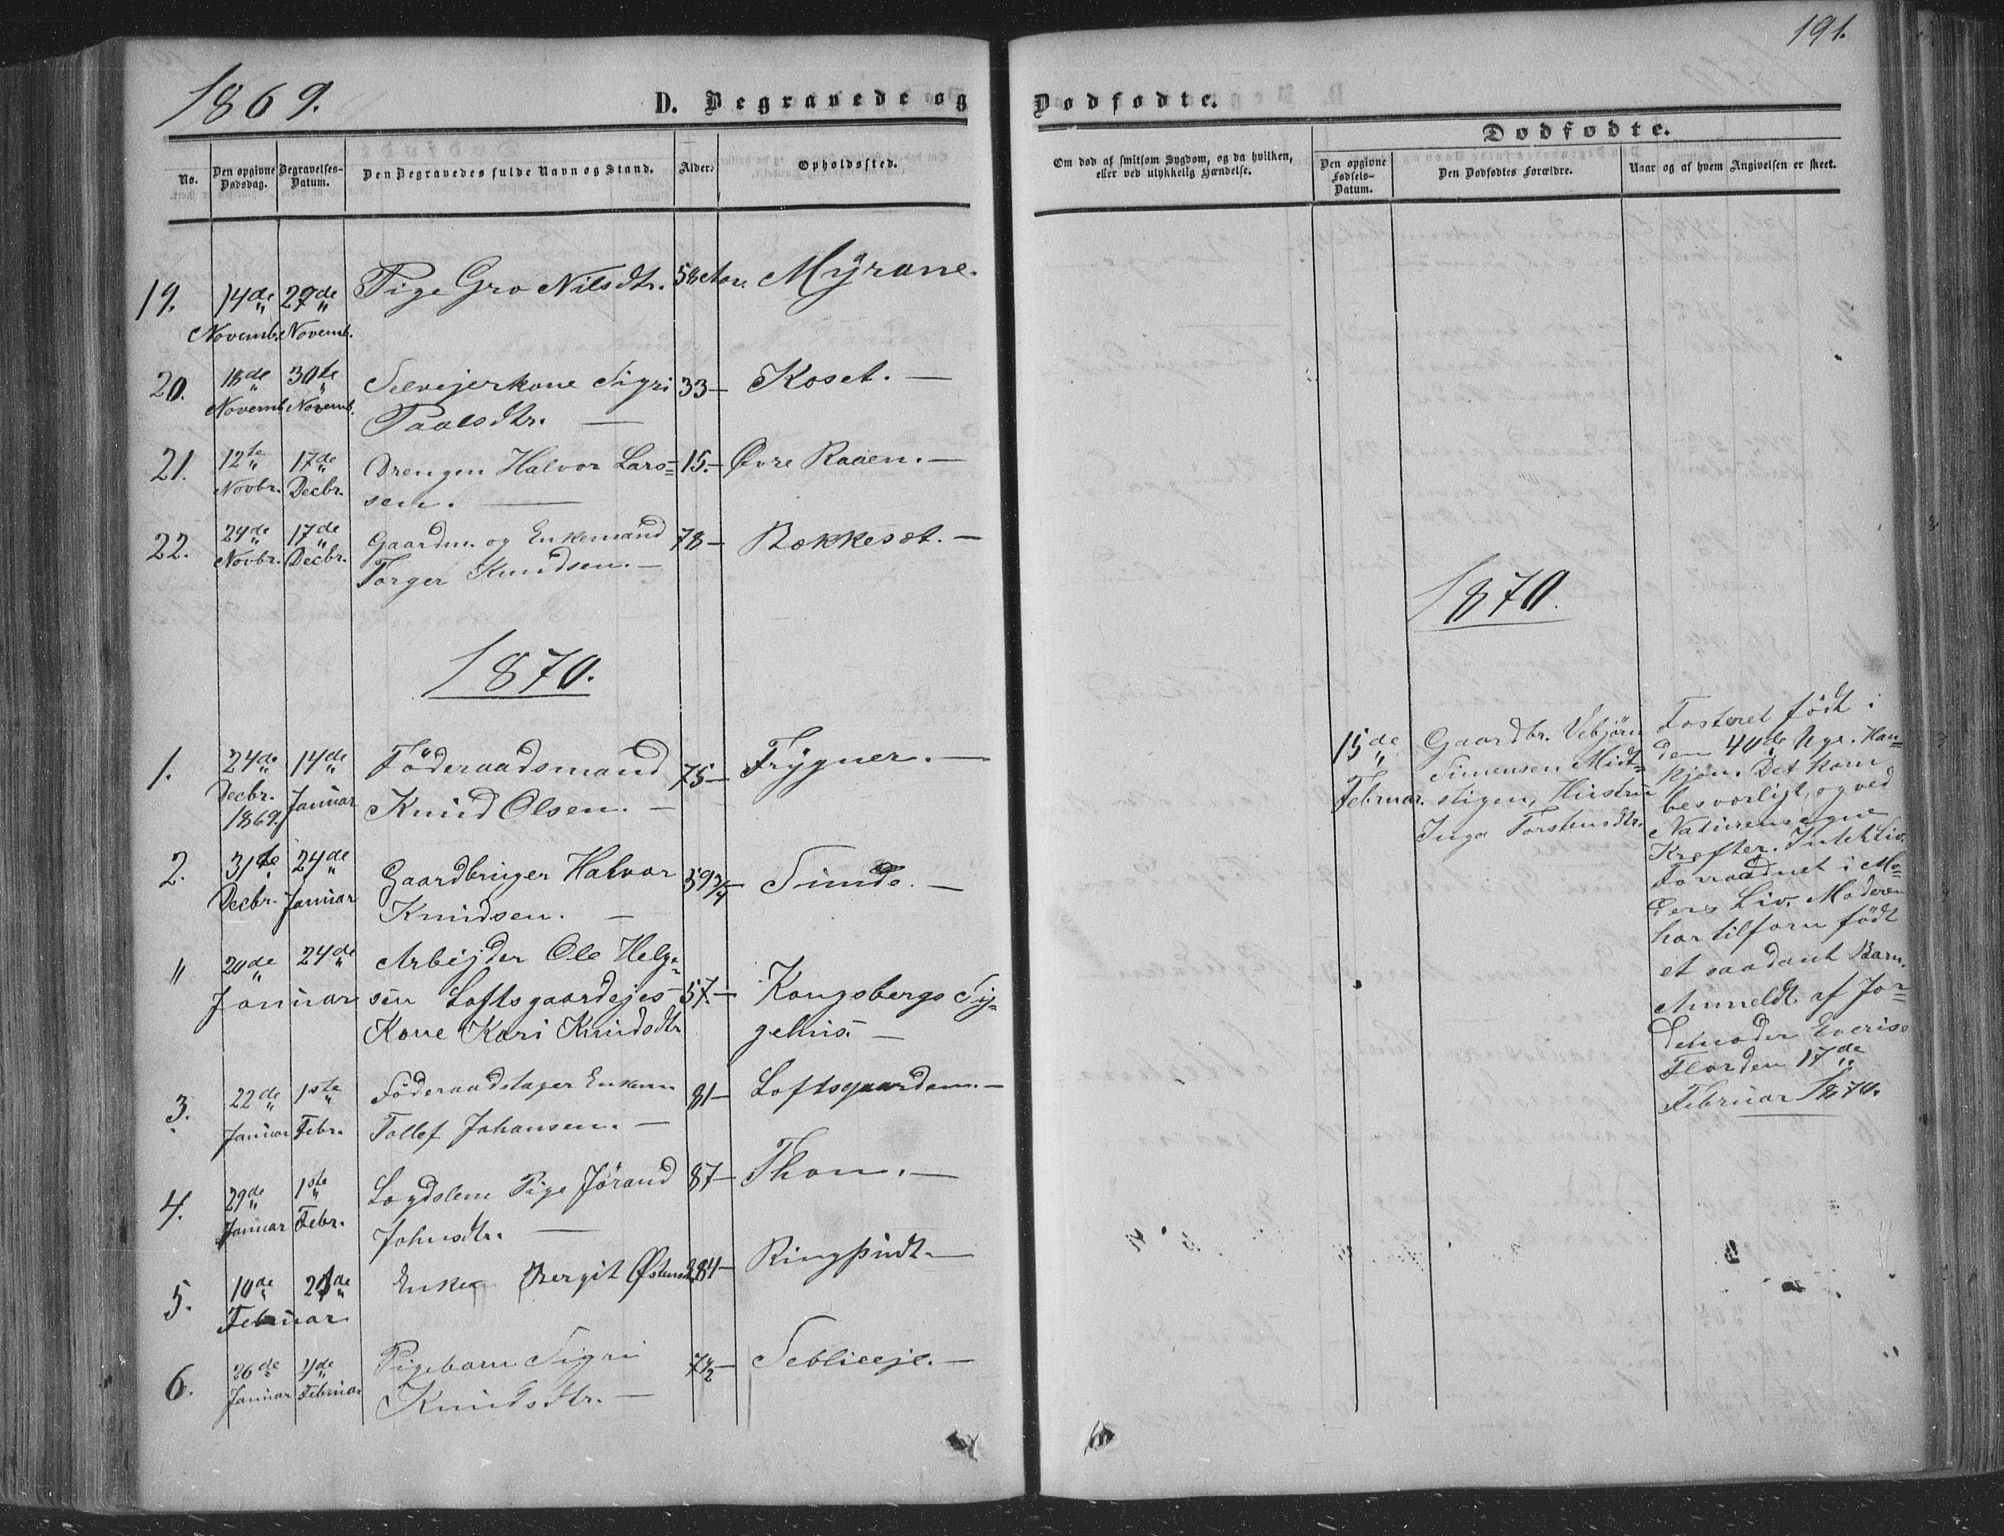 1869.
D. Begravede og
No.
Den opgivne Dødsdag.
Begravelses-Datum.
Den Begravedes fulde Navn og Stand.
Alder.
Opholdssted.
19. 14de Novemb. 29de Novemb. Pige Gro Nilsdtr. 58 Myrane.
20. 18de Novemb. 30te Novemb. Selvejerkone Sigri 33 — Koset. —
Paalsdtr. —
21. 12te Novbr. 17de Decbr. Drengen Halvor Lars= 15. — Øvre Raaen. —
sen. —
22. 24de Novbr. 17de Decbr. Gaardm. og Enkemand 78 — Bekkeset. —
Torger Knudsen. —
1870.
1. 24de Decbr. 1869. 14de Januar Föderaadsmand 75 — Frygner. —
Knud Olsen. —
2. 31te Decbr. 24de Januar Gaardbruger Halvor 59 3/4 — Sunde. —
Knudsen. —
" 20de 24de Januar Arbejder Ole Helge=
sen Loftsgaardejes 57. — Kongsbergs Sy=
Kone Kari Knudsdtr gehus. —
3. 22de Januar 1ste Febr. Föderaadstager Enkem. 81 — Loftsgaarden. —
Tollef Johansen. —
4. 29de Januar 1ste Febr. Logdslem Pige Jörand 87 — Thon. —
Johnsdtr. —
5. 10de 21de Februar Enken Bergit 84 — Ringhudt —
6. 26de Januar 4de Februar Pigebarn Sigri 7 1/2 —
Knudsdtr. —
191.
Dødfødte.
Om død af smitsom Sygdom, og da hvilken,
eller ved ulykkelig Hændelse.
Dødfødte.
Den opgivne Fødsels-Datum.
Den Dødfødtes Forældre.
Naar og af hvem Angivelsen er skeet.
1870.
15de Februar.
Gaardbr. Vebjörn
Simensen Midt=
stigen, Hustru
Inga Torstensdtr.
Fosteret födt i
den 40de Uge. Han=
kjön. Det kom
besværligt, og ved
Naturens egne
Kræfter. Intet Liv.
Forraadnet i Mo=
ders Liv. Moderen
har tilforn födt
et saadant Barn.
Anmeldt af Jor=
demoder
Flor den 17de
Februar 1870.